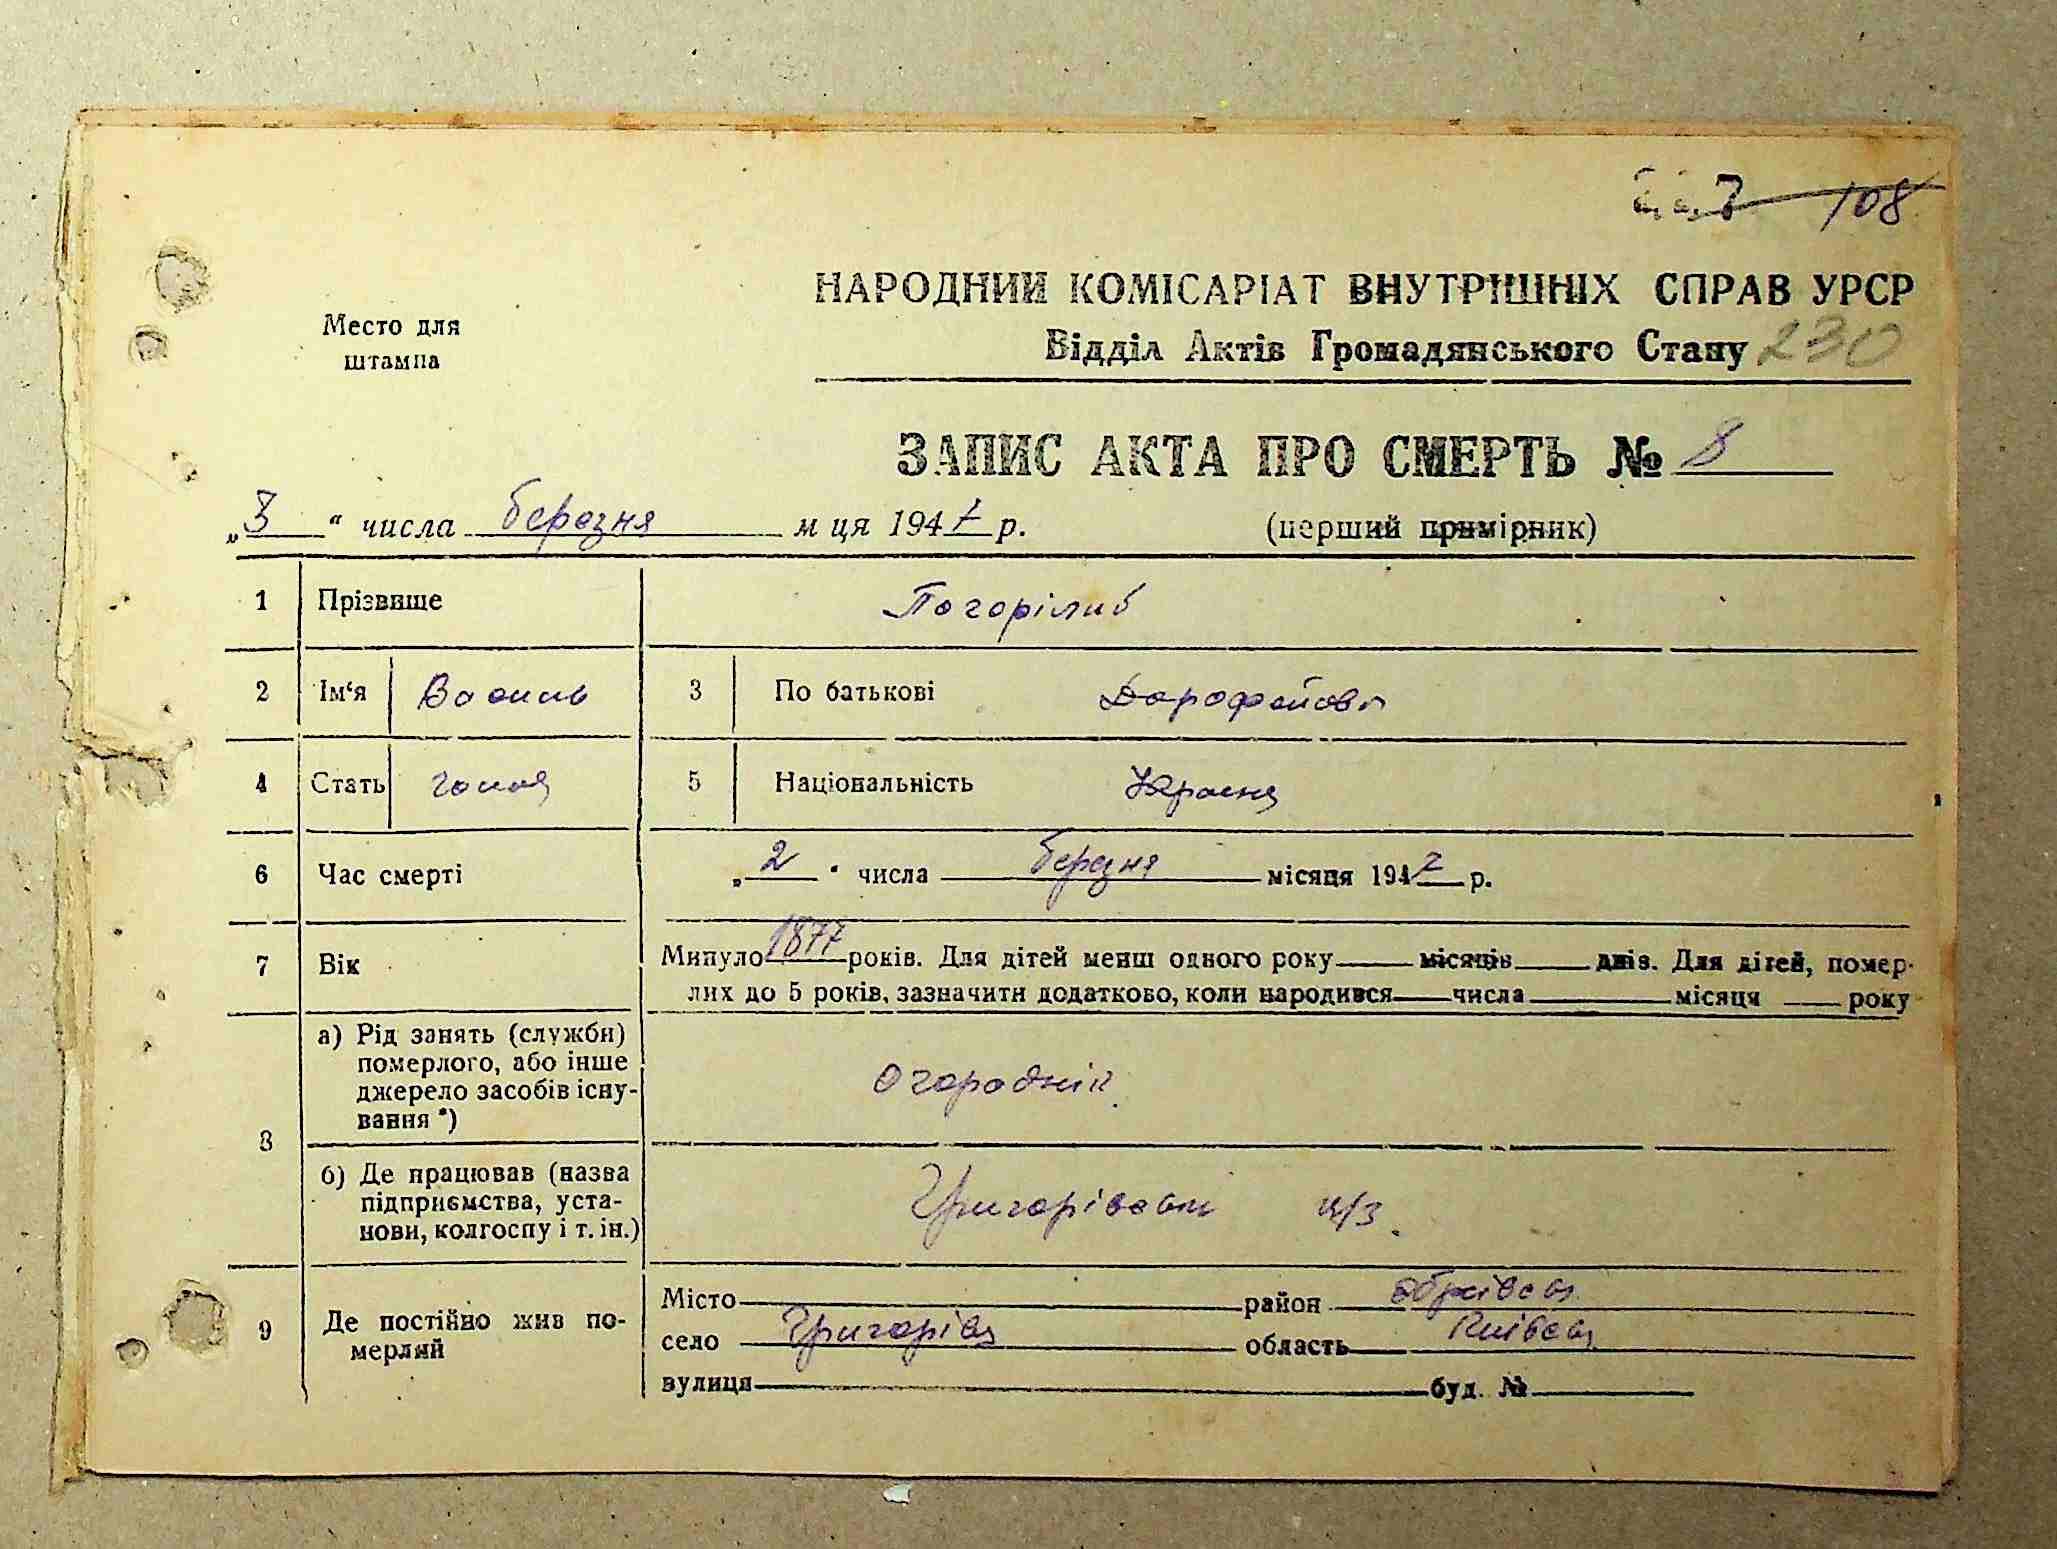 108
НАРОДНИЙ КОМІСАРІАТ ВНУТРІШНІХ СПРАВ УРСР
Место для
штампа
Відділ Актів Громадянського Стану 230
ЗАПИС АКТА ПРО СМЕРТЬ № 8
„3“ числа березня м ця 1947 р. (перший примірник)
1 Прізвище Погорілий
2 Ім‘я Василь 3 По батькові Дорофейови
4 Стать чолов 5 Національність Україн
6 Час смерті „2“ числа березня місяця 1947 р.
7 Вік Минуло 1877 років. Для дітей менш одного року місяців днів. Для дітей, помер-
лих до 5 років, зазначити додатково, коли народився числа місяця року
8 а) Рід занять (служби)
померлого, або інше
джерело засобів існу-
вання *)
Огороднік
б) Де працював (назва
підприємства, уста-
нови, колгоспу і т. ін.)
Григорівськ ц/з
9 Де постійно жив по-
мерлий
Місто район Обухівськ
село Григорівц область Київськ
вулиця буд. №